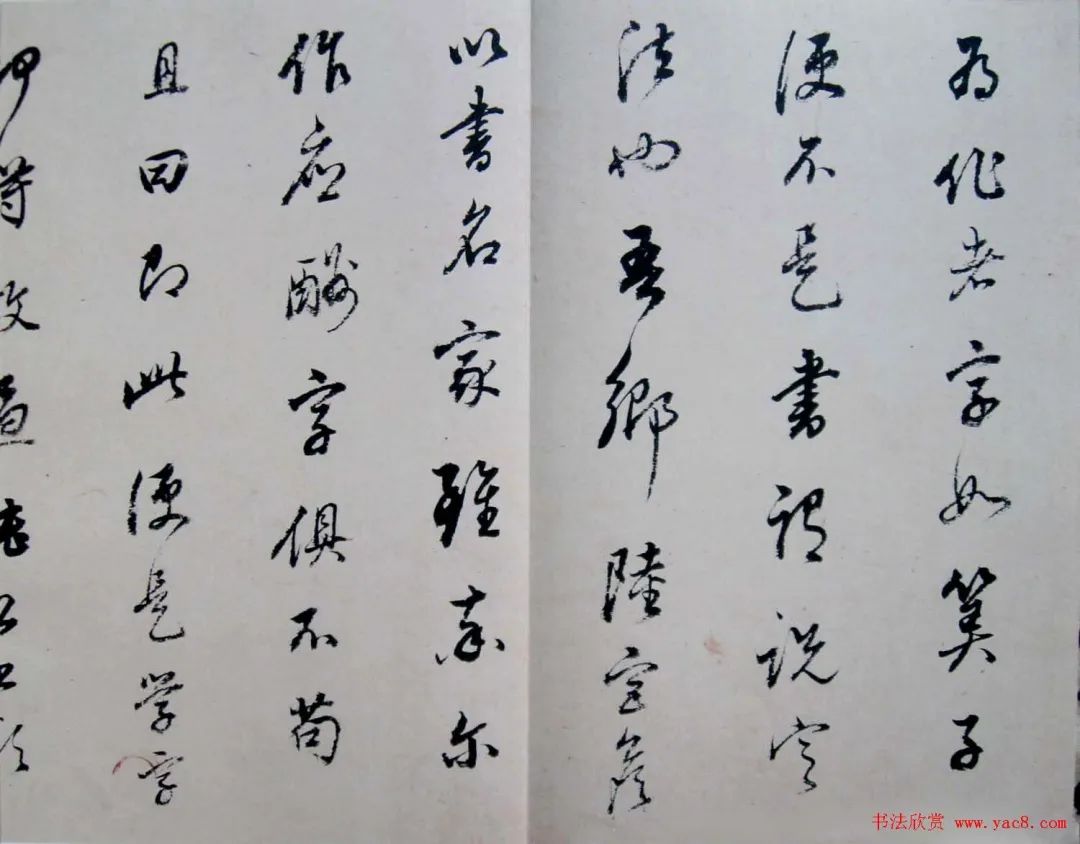 為作者字如算子
便不是書謂說定
法也吾鄉陸宮詹
以書名家雖率爾
作應酬字俱不苟
且曰即此便是學字
何得放過
书法欣赏 www.yac8.com